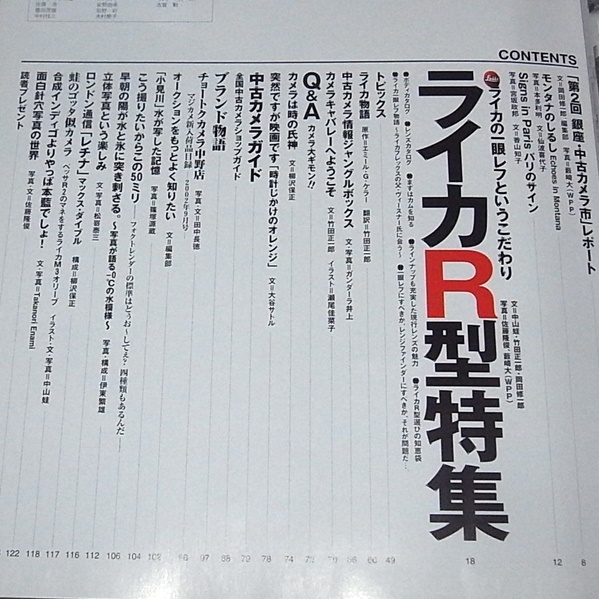 CONTENTS
「第2回 銀座・中古カメラ市」レポート
文=岡田修一郎、編集部 写真=薮崎大(WPP)
モンタナのしるし Echoes in Montana
写真=本多利明 文=仙波喜代子
Signs in Paris パリのサイン
写真=宮坂政邦 文=香山知子
Leica
ライカの一眼レフというこだわり
ライカR型特集
文=中山蛙・竹田正一郎・岡田修一郎
写真=佐藤隆俊、薮崎大(WPP)
●ボディカタログ ●レンズカタログ ●まずはカムを知る ●ラインナップも充実した現行レンズの魅力
●ライカ一眼レフ物語〜ライカフレックスの父・ヴィースナー氏に会う〜 ●一眼レフにすべきか、レンジファインダーにすべきか、それが問題だ… ●ライカR型選びの知恵袋
トピックス
ライカ物語 原作=エミール・G・ケラー 翻訳=竹田正一郎
中古カメラ情報ジャングルボックス 文・写真=ガンダーラ井上
カメラキャバレーへようこそ 文=竹田正一郎 イラスト=瀬尾佳菜子
Q&A カメラ大ギモン!!
カメラは時の氏神 文=柳沢保正
突然ですが映画です「時計じかけのオレンジ」 文=大谷サトル
中古カメラガイド
全国中古カメラショップガイド
ブランド物語
マジカメ新入荷品目録――2002年9月号
チョートクカメラ中野店 写真・文=田中長徳
オークションをもっとよく知りたい 文=編集部
「小見川」水が写した記憶 写真・文=篠塚源蔵
こう撮りたいからこの50ミリ――フォクトレンダーの標準はどうお〜してえ?四種類もあるんだ――
早朝の陽が水と氷に突き刺さる。〜写真が語る-0℃の水模様〜 写真・構成=伊東繁雄
立体写真という楽しみ 文・写真=松嵜泰三
ロンドン通信「レチナ」 マックス・ダイブル 構成=柳沢保正
蛙のゴッタ似カメラ ベッサR2のマネをするライカM3オリーブ イラスト・文・写真=中山蛙
合成インディゴよりやっぱ本藍でしょ! 文・写真=Takanori Enami
面白針穴写真の世界 写真・文=佐藤隆俊
読者プレゼント
122 118 117 116 114 112 106 104 102 96 97 88 79 78 72 79 78 76 66 60 49 18 12 8